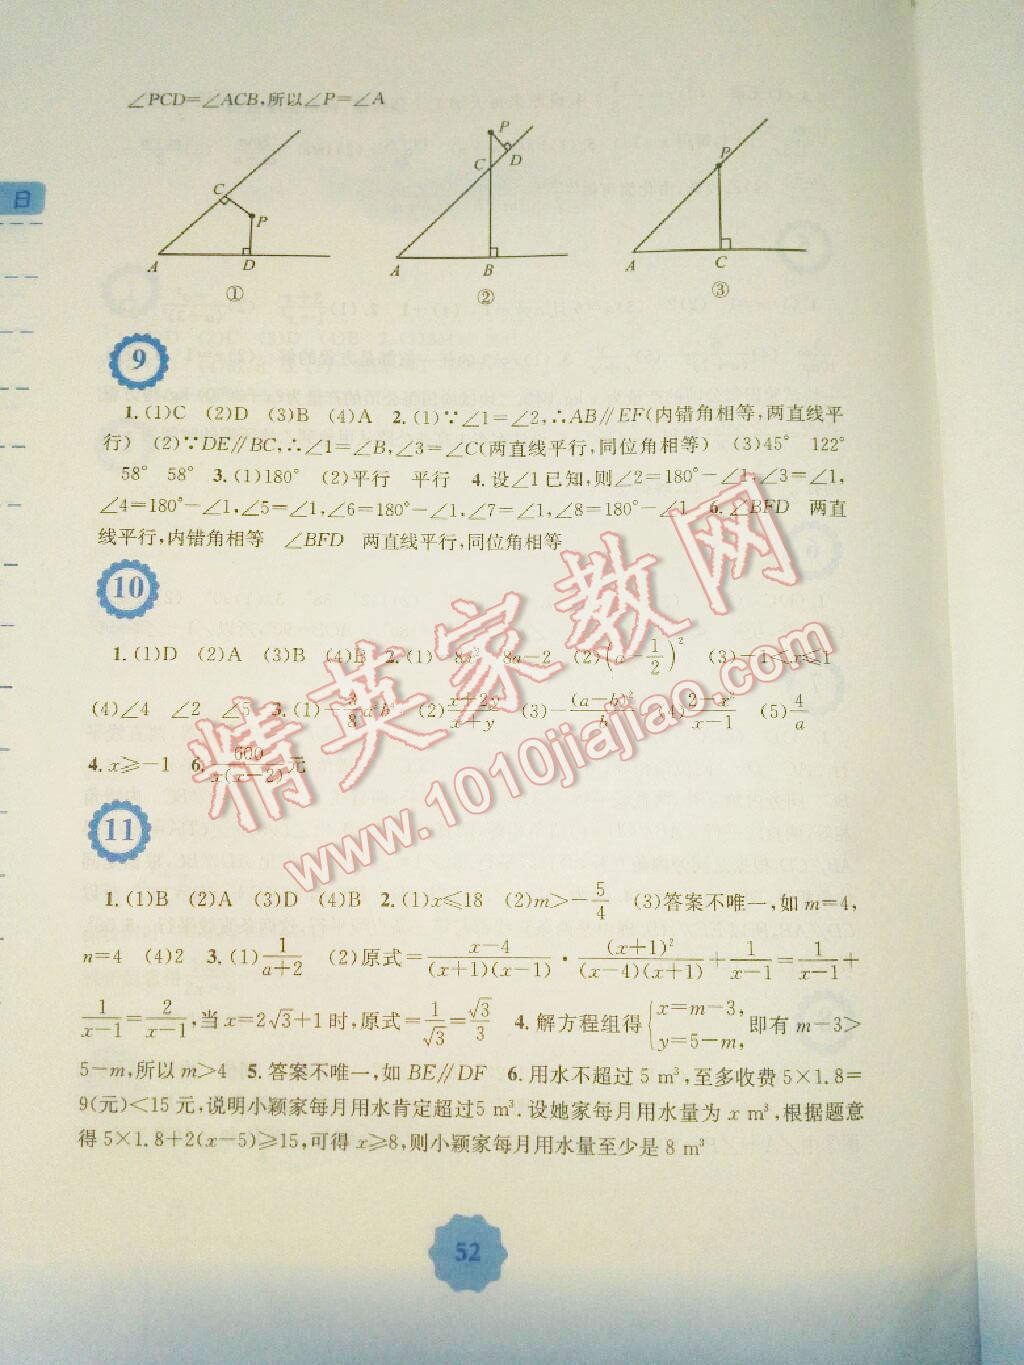 日
∠PCD=∠ACB,所以∠P=∠A
C P A D ①
P C D A B ②
P A C ③
9
1. (1)C (2)D (3)B (4)A 2. (1)∵∠1=∠2,∴AB∥EF(内错角相等,两直线平
行) (2)∵DE∥BC,∴∠1=∠B,∠3=∠C(两直线平行,同位角相等) (3)45° 122°
58° 58° 3. (1)180° (2)平行 平行 4. 设∠1已知,则∠2=180°-∠1,∠3=∠1,
∠4=180°-∠1,∠5=∠1,∠6=180°-∠1,∠7=∠1,∠8=180°-∠1 6. ∠BFD 两直
线平行,内错角相等 ∠BFD 两直线平行,同位角相等
10
1. (1)D (2)A (3)B (4)B 2. (1) 8a² 8a-2 (2)(a-1/2)² (3)-1<x≤1
(4)∠4 ∠2 ∠5 3. (1)- (2)(x+2y)/(x+y) (3)-(a-b)²/b (4)(2-x²)/(x-1) (5)4/a
4. x≥-1 6. 600/(x(x-2))元
11
1. (1)B (2)A (3)D (4)B 2. (1)x≤18 (2)m>-5/4 (3)答案不唯一,如m=4,
n=4 (4)2 3. (1)1/(a+2) (2)原式=(x-4)/((x+1)(x-1))·(x+1)²/((x-4)(x+1))+1/(x-1)=1/(x-1)+
1/(x-1)=2/(x-1),当x=2√3+1时,原式=1/√3=√3/3 4. 解方程组得{x=m-3, y=5-m,即有m-3>
5-m,所以m>4 5. 答案不唯一,如BE∥DF 6. 用水不超过5 m³,至多收费5×1.8=
9(元)<15元,说明小颖家每月用水肯定超过5 m³. 设她家每月用水量为x m³,根据题意
得5×1.8+2(x-5)≥15,可得x≥8,则小颖家每月用水量至少是8 m³
52
精英家教网
www.1010jiajiao.com